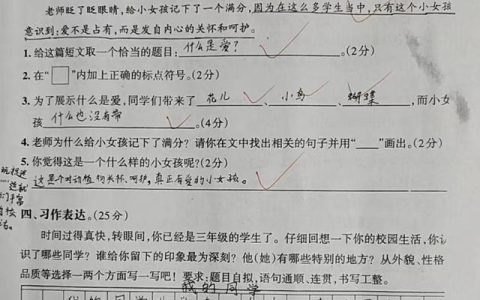 老师眨了眨眼睛,给小女孩记下了一个满分,因为在这么多学生当中,只有这个小女孩
意识到:爱不是占有,而是发自内心的关怀和呵护。
1. 给这篇短文取一个恰当的题目: 什么是爱? 。(2分)
2. 在“□”内加上正确的标点符号。(2分)
3. 为了展示什么是爱,同学们带来了 花儿 、 小鸟 、 蝴蝶 ,而小女
孩 什么也没有带 。(4分)
4. 老师为什么给小女孩记下了满分?请你在文中找出相关的句子并用“ ”画出。(2分)
5. 你觉得这是一个什么样的小女孩呢?(2分)
这是个对动植物关怀、呵护,真正有爱的小女孩。
四、习作表达。(25分)
时间过得真快,转眼间,你已经是三年级的学生了。仔细回想一下你的校园生活,你认
识了哪些同学?谁给你留下的印象最为深刻?他(她)有哪些特别的地方?从外貌、性格
品质等选择一两个方面写一写吧!要求:题目自拟,语句通顺、连贯,书写工整。
我的同学